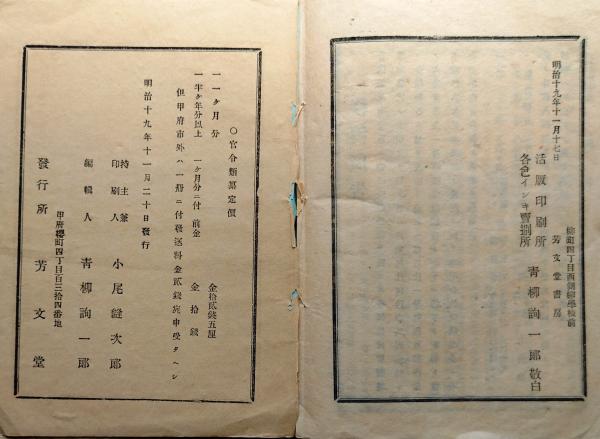 明治十九年十一月十七日
櫻町四丁目西側柳學校前
芳文堂書房
活版印刷所
各色インキ賣捌所
青柳詢一郎敬白
〇官令類纂定價
一一ヶ月分 金拾貳錢五厘
一半ヶ年分以上 一ヶ月分ニ付 前金 金拾錢
但甲府市外ハ一册ニ付遞送料金貳錢宛申受タヘシ
明治十九年十一月二十日發行
持主兼印刷人 小尾縫次郎
編輯人 青柳詢一郎
甲府櫻町四丁目百三拾四番地
發行所 芳文堂